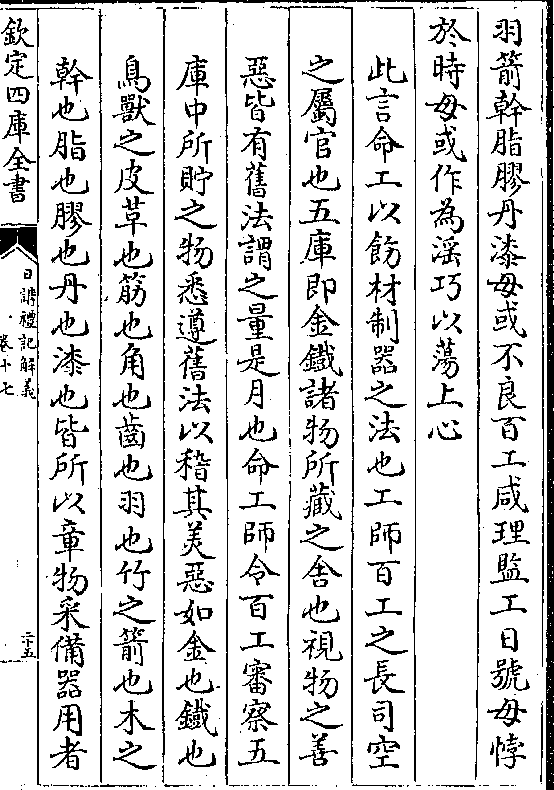 羽箭幹脂膠丹漆毋或不良百工咸理監工日號毋悖
於時毋或作為淫巧以蕩上心
此言命工以飭材制器之法也工師百工之長司空
之屬官也五庫即金鐵諸物所藏之舍也視物之善
惡皆有舊法謂之量是月也命工師令百工審察五
庫中所貯之物悉遵舊法以稽其美惡如金也鐵也
鳥獸之皮革也筋也角也齒也羽也竹之箭也木之
幹也脂也膠也丹也漆也皆所以章物采備器用者
欽定四庫全書
日講禮記解義
卷十七
二十五